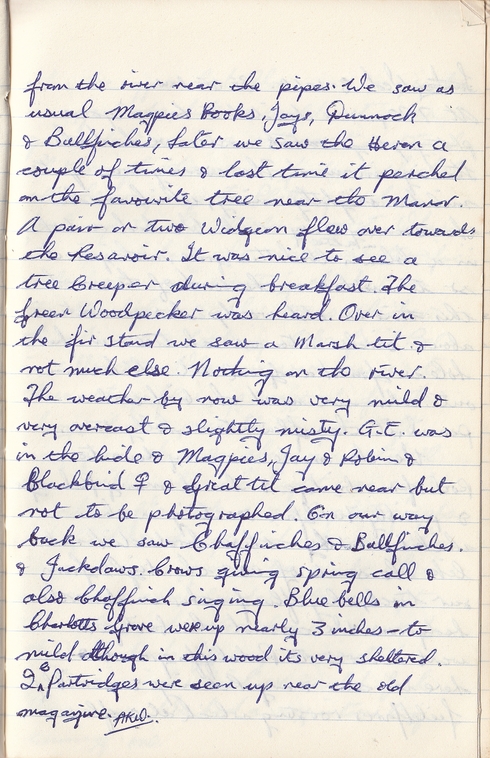 from the river near the pipes. We saw as
usual Magpies Rooks, Jays, Dunnock
& Bullfinches, Later we saw the Heron a
couple of times & last time it perched
on the favourite tree near the Manor.
A pair or two Widgeon flew over towards
the Resavoir. It was nice to see a
tree Creeper during breakfast. The
green Woodpecker was heard. Over in
the fir stand we saw a Marsh tit &
not much else. Nothing on the river.
The weather by now was very mild &
very overcast & slightly misty. G.E. was
in the hide & Magpies, Jay & Robin &
Blackbird ♀ & Great tit came near but
not to be photographed. On our way
back we saw Chaffinches & Bullfinches.
& Jackdaws. Crows giving spring call &
also Chaffinch singing. Bluebells in
Charlotts Grove were up nearly 3 inches - to
mild although in this wood its very sheltered.
2 Partridges were seen up near the old
magazine. AKW.